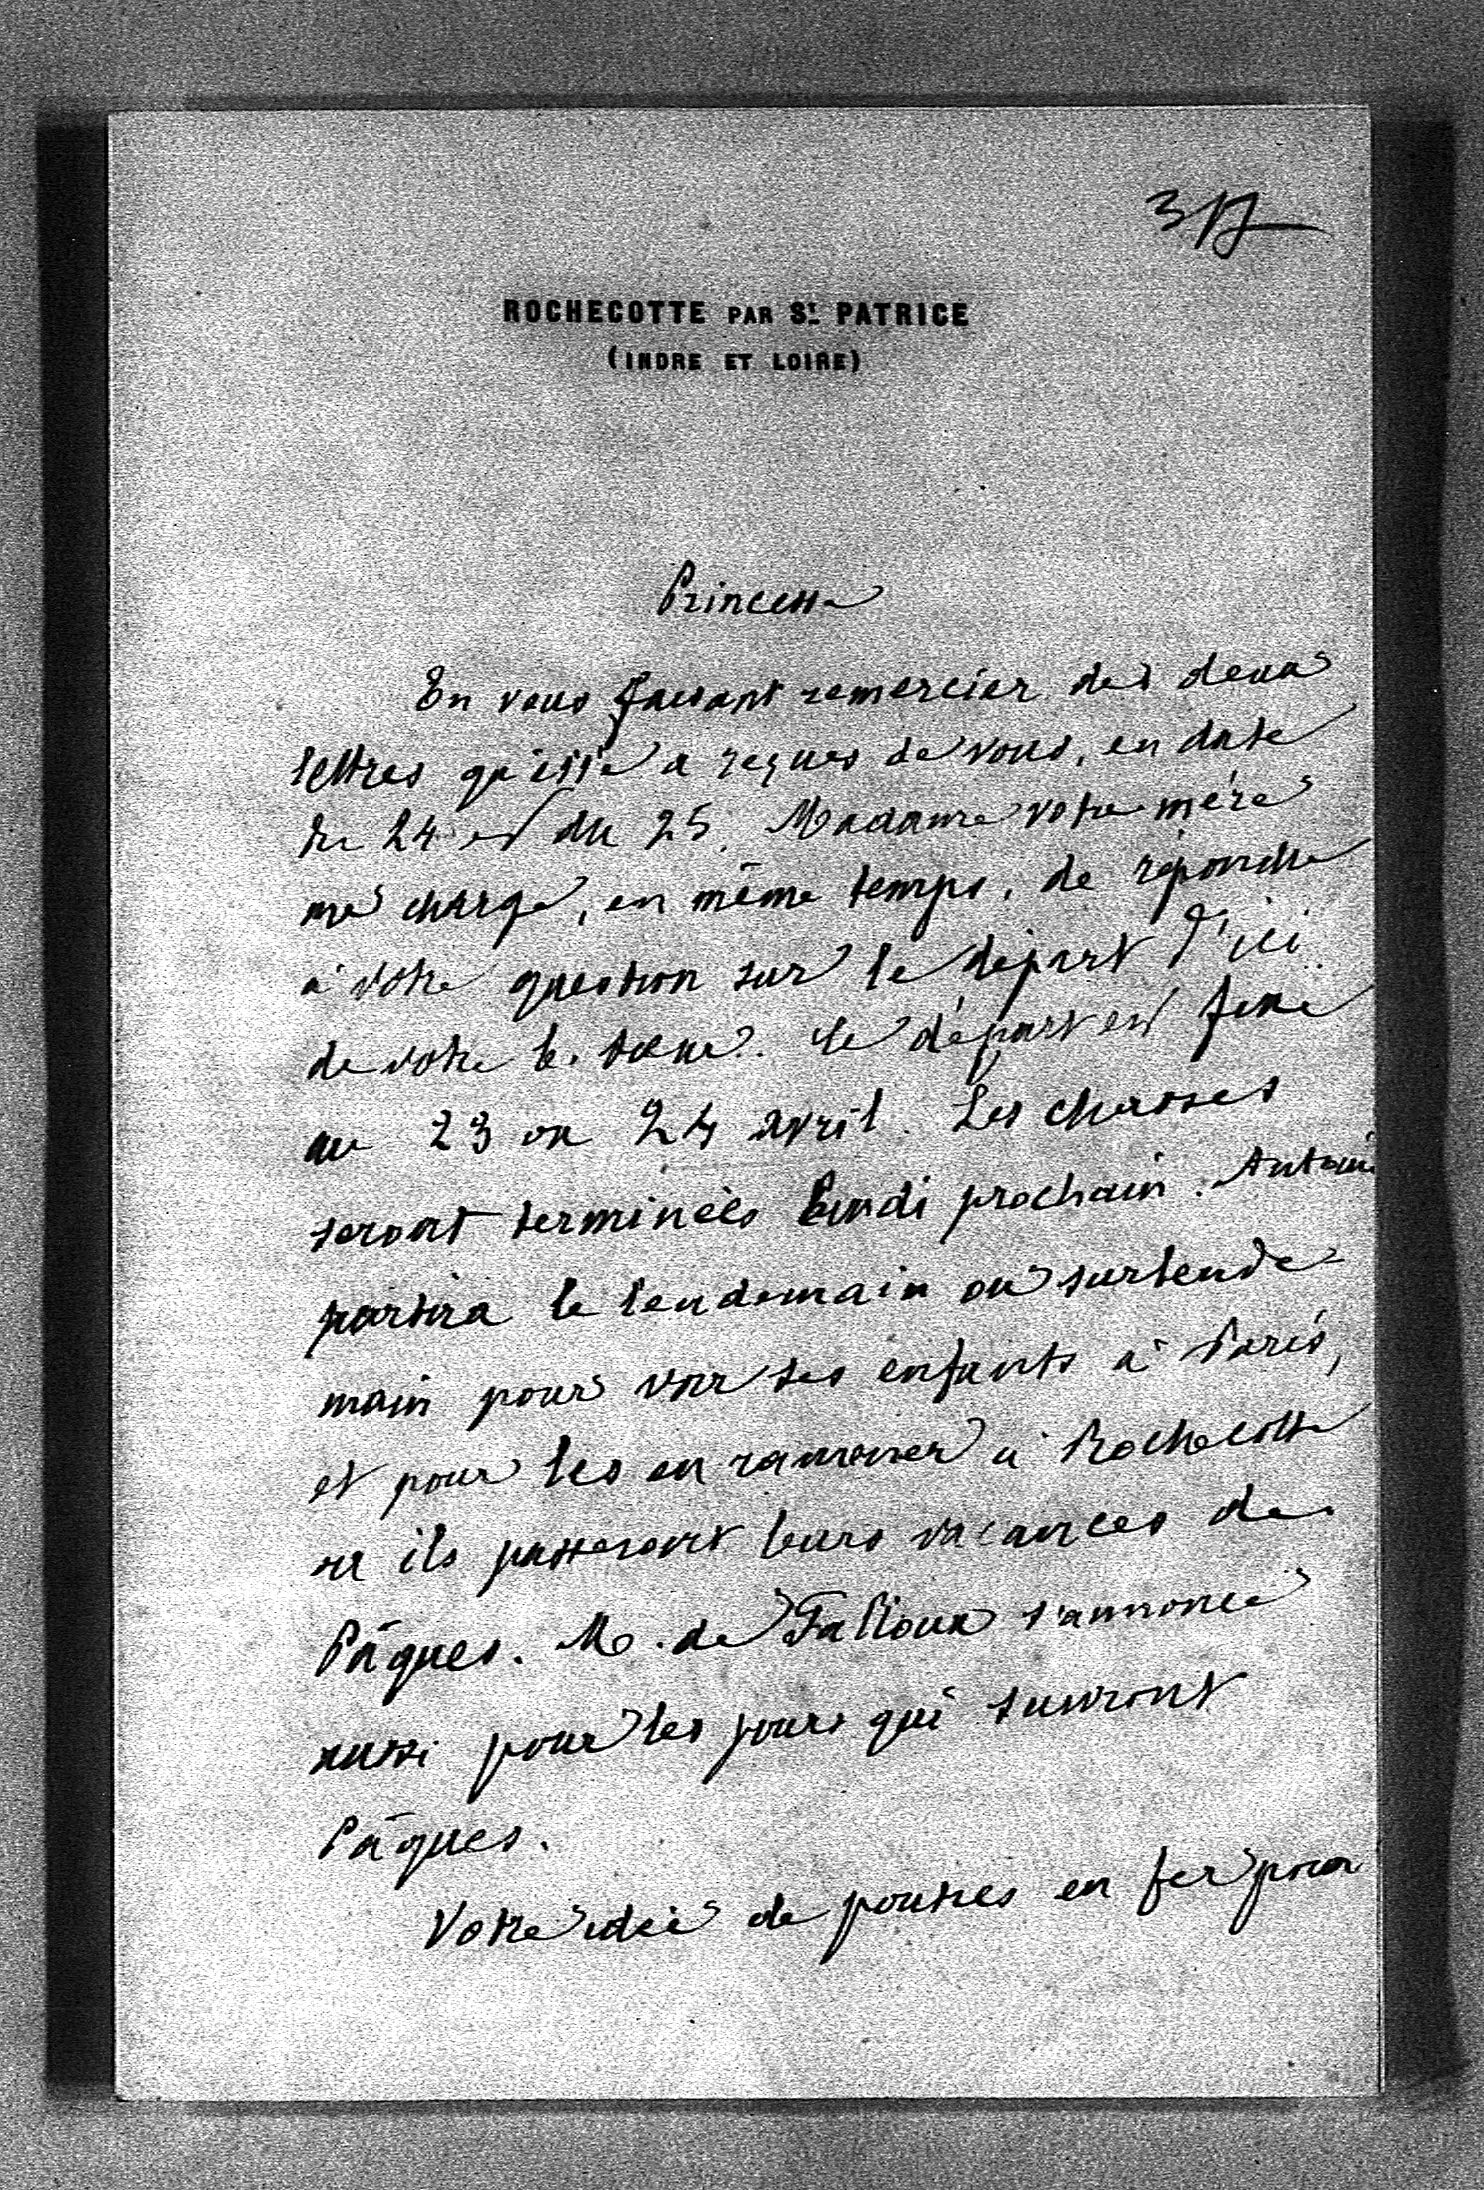 317
ROCHECOTTE PAR ST PATRICE
(INDRE ET LOIRE)
Princesse
En vous faisant remercier des deux
lettres qu'elle a reçues de vous, en date
du 24 et du 25, Madame votre mère
me charge, en même temps, de répondre
à votre question sur le départ d'ici
de votre b. sœur. Le départ est fixé
au 23 ou 24 avril. Les chasses
seront terminées lundi prochain. Antoine
partira le lendemain ou surlende-
main pour voir ses enfants à Paris,
et pour les en ramener à Rochecotte
où ils passeront leurs vacances de
Pâques. M. de Falloux s'annonce
aussi pour les jours qui suivront
Pâques.
Votre idée de poutres en fer pour